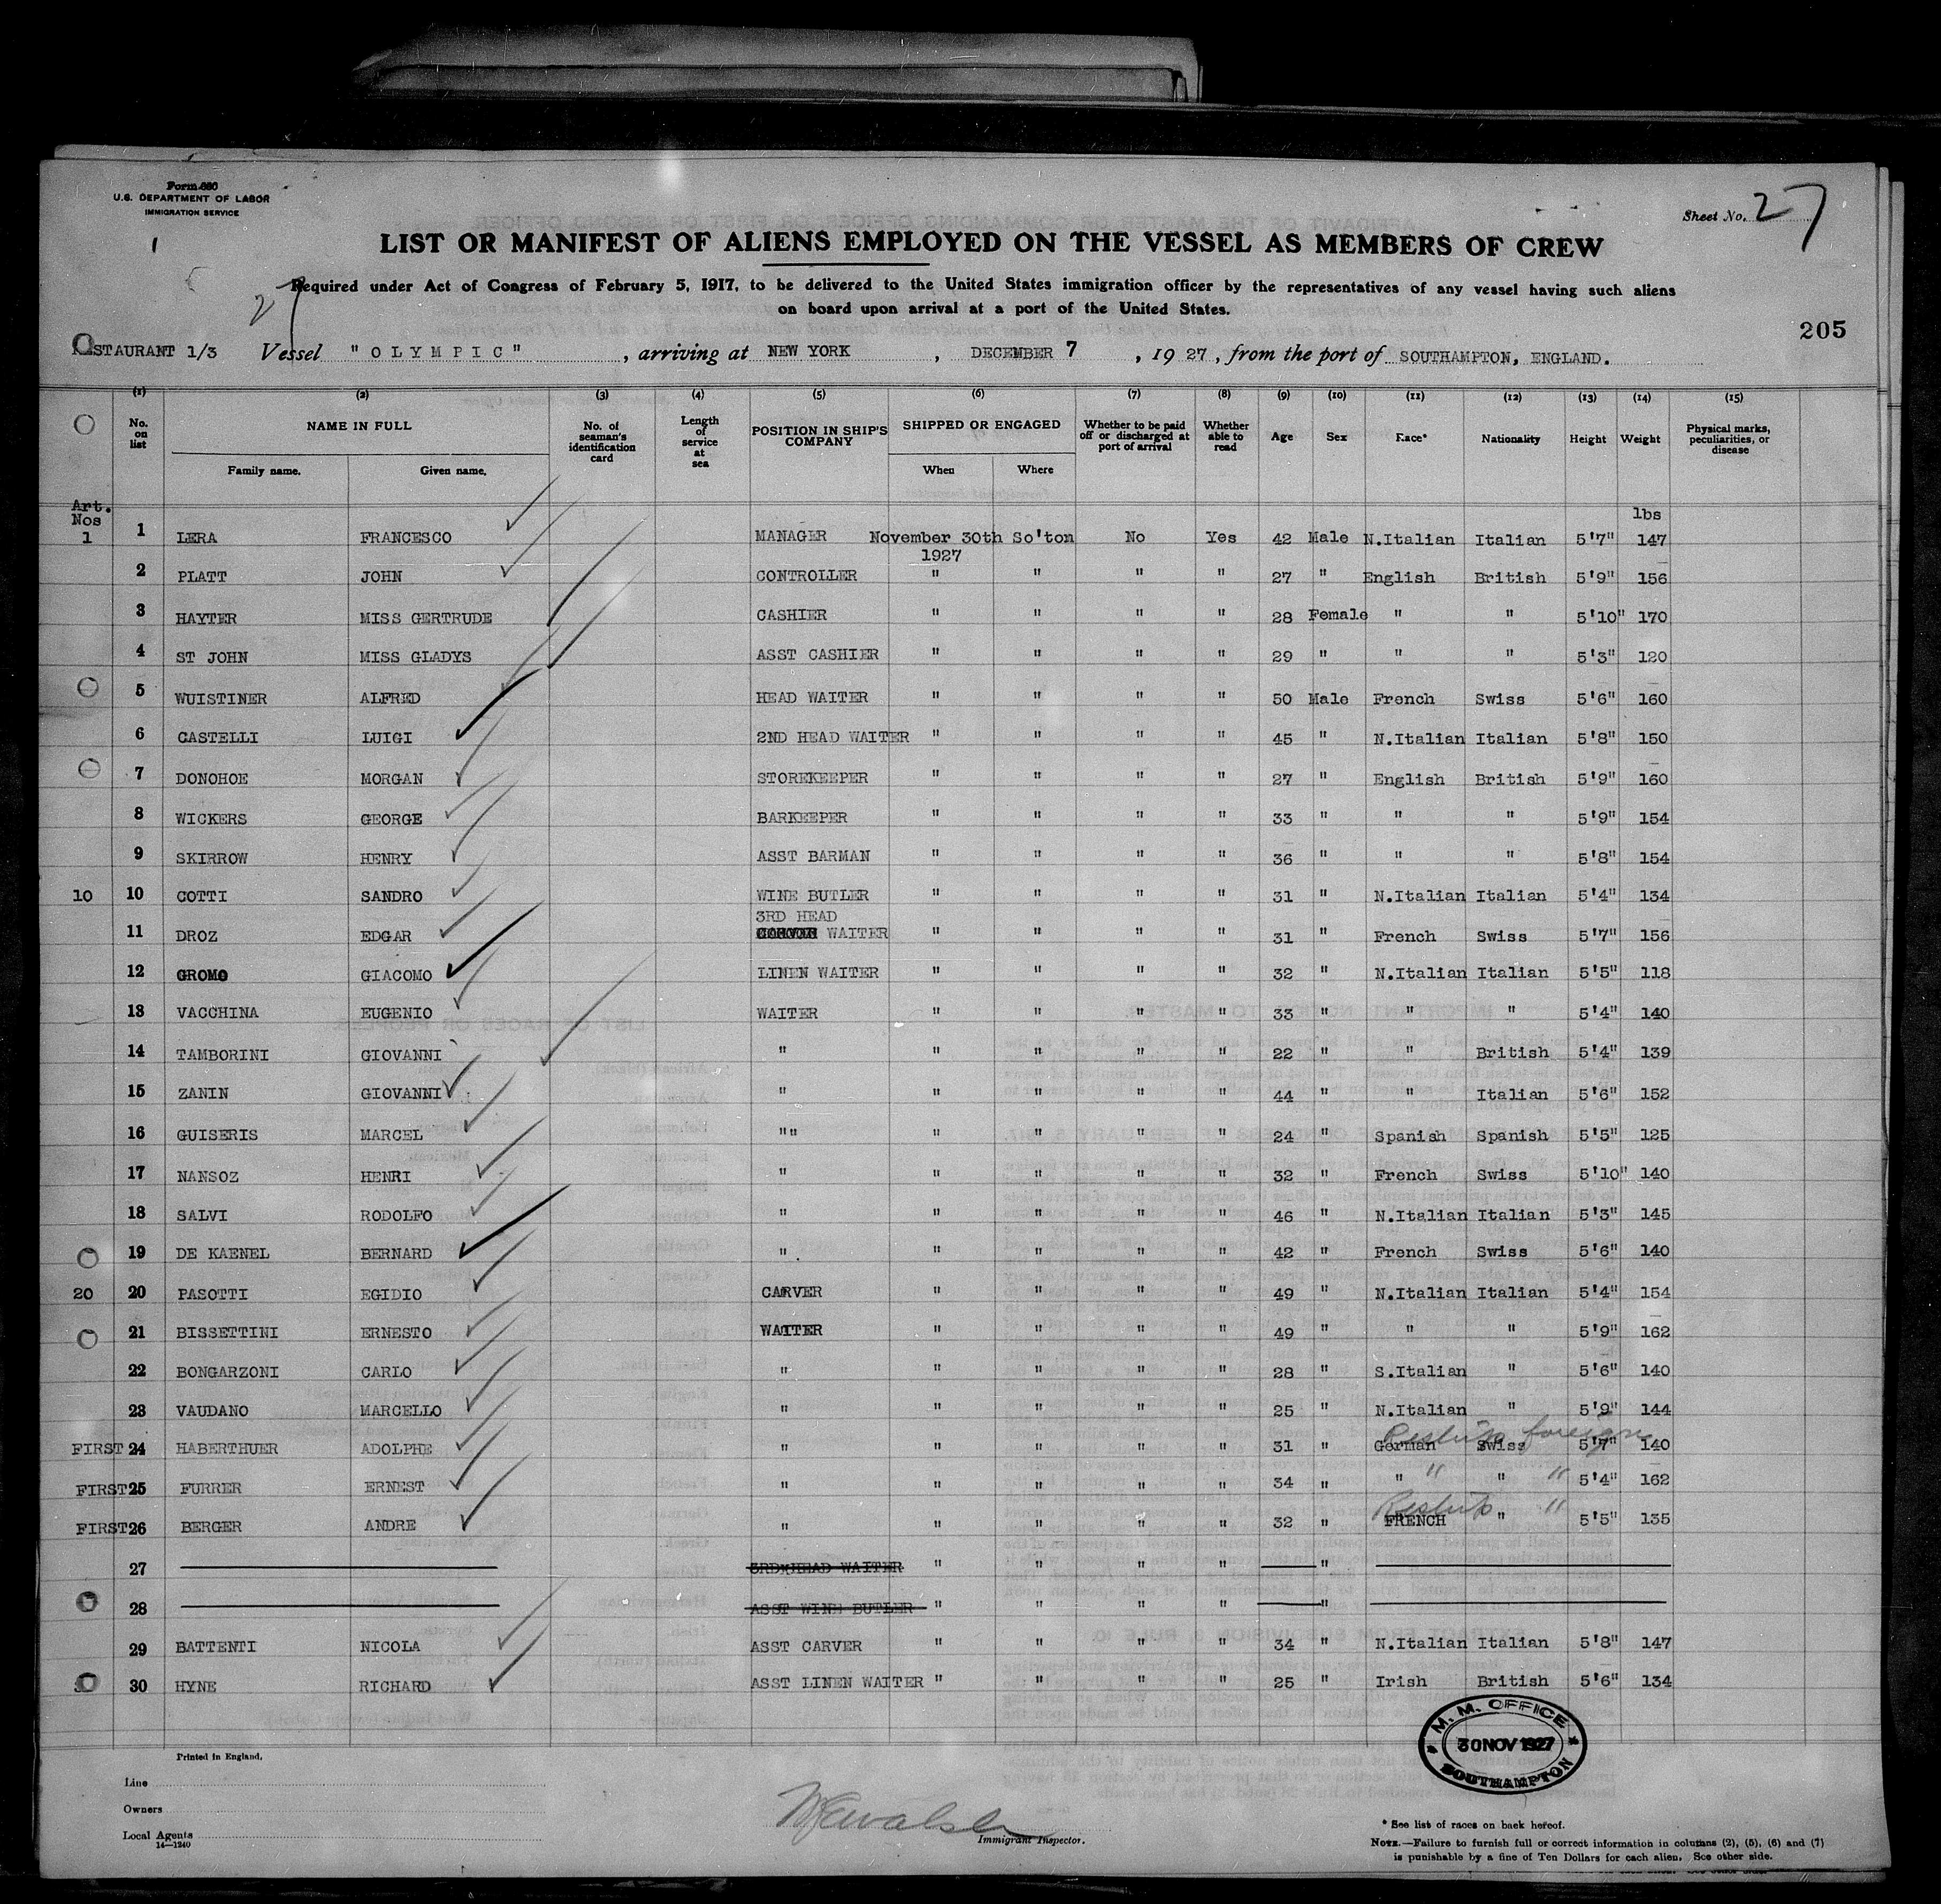 Form 680
U.S. DEPARTMENT OF LABOR
IMMIGRATION SERVICE
Sheet No. 27
LIST OR MANIFEST OF ALIENS EMPLOYED ON THE VESSEL AS MEMBERS OF CREW
27
Required under Act of Congress of February 5, 1917, to be delivered to the United States immigration officer by the representatives of any vessel having such aliens
on board upon arrival at a port of the United States.
205
STAURANT 1/3 Vessel "OLYMPIC", arriving at NEW YORK, DECEMBER 7, 1927, from the port of SOUTHAMPTON, ENGLAND.
(1) (2) (3) (4) (5) (6) (7) (8) (9) (10) (11) (12) (13) (14) (15)
No. on list NAME IN FULL Family name. Given name. No. of seaman's identification card Length of service at sea POSITION IN SHIP'S COMPANY SHIPPED OR ENGAGED When Where Whether to be paid off or discharged at port of arrival Whether able to read Age Sex Race* Nationality Height Weight Physical marks, peculiarities, or disease
Art. Nos lbs
1 1 LERA FRANCESCO MANAGER November 30th 1927 So'ton No Yes 42 Male N.Italian Italian 5'7" 147
2 PLATT JOHN CONTROLLER " " " " 27 " English British 5'9" 156
3 HAYTER MISS GERTRUDE CASHIER " " " " 28 Female " " 5'10" 170
4 ST JOHN MISS GLADYS ASST CASHIER " " " " 29 " " " 5'3" 120
5 WUISTINER ALFRED HEAD WAITER " " " " 50 Male French Swiss 5'6" 160
6 CASTELLI LUIGI 2ND HEAD WAITER " " " " 45 " N.Italian Italian 5'8" 150
7 DONOHOE MORGAN STOREKEEPER " " " " 27 " English British 5'9" 160
8 WICKERS GEORGE BARKEEPER " " " " 33 " " " 5'9" 154
9 SKIRROW HENRY ASST BARMAN " " " " 36 " " " 5'8" 154
10 10 COTTI SANDRO WINE BUTLER " " " " 31 " N.Italian Italian 5'4" 134
11 DROZ EDGAR 3RD HEAD WAITER " " " " 31 " French Swiss 5'7" 156
12 GROMO GIACOMO LINEN WAITER " " " " 32 " N.Italian Italian 5'5" 118
13 VACCHINA EUGENIO WAITER " " " " 33 " " " 5'4" 140
14 TAMBORINI GIOVANNI " " " " " 22 " " British 5'4" 139
15 ZANIN GIOVANNI " " " " " 44 " " Italian 5'6" 152
16 GUISERIS MARCEL "" " " " " 24 " Spanish Spanish 5'5" 125
17 NANSOZ HENRI " " " " " 32 " French Swiss 5'10" 140
18 SALVI RODOLFO " " " " " 46 " N.Italian Italian 5'3" 145
19 DE KAENEL BERNARD " " " " " 42 " French Swiss 5'6" 140
20 20 PASOTTI EGIDIO CARVER " " " " 49 " N.Italian Italian 5'4" 154
21 BISSETTINI ERNESTO WAITER " " " " 49 " " " 5'9" 162
22 BONGARZONI CARLO " " " " " 28 " S.Italian " 5'6" 140
23 VAUDANO MARCELLO " " " " " 25 " N.Italian " 5'9" 144
foreign
FIRST 24 HABERTHUER ADOLPHE " " " " " 31 " German Swiss 5'7" 140
FIRST 25 FURRER ERNEST " " " " " 34 " " " " " 5'4" 162
"
FIRST 26 BERGER ANDRE " " " " " 32 " FRENCH " 5'5" 135
27 3RD HEAD WAITER " " " " "
28 ASST WINE BUTLER " " " " "
29 BATTENTI NICOLA ASST CARVER " " " " 34 " N.Italian Italian 5'8" 147
30 HYNE RICHARD ASST LINEN WAITER " " " " 25 " Irish British 5'6" 134
M. M. OFFICE
30 NOV 1927
SOUTHAMPTON
Printed in England.
Line
Owners
Local Agents
14—1240
Immigrant Inspector.
* See list of races on back hereof.
NOTE.—Failure to furnish full or correct information in columns (2), (5), (6) and (7)
is punishable by a fine of Ten Dollars for each alien. See other side.